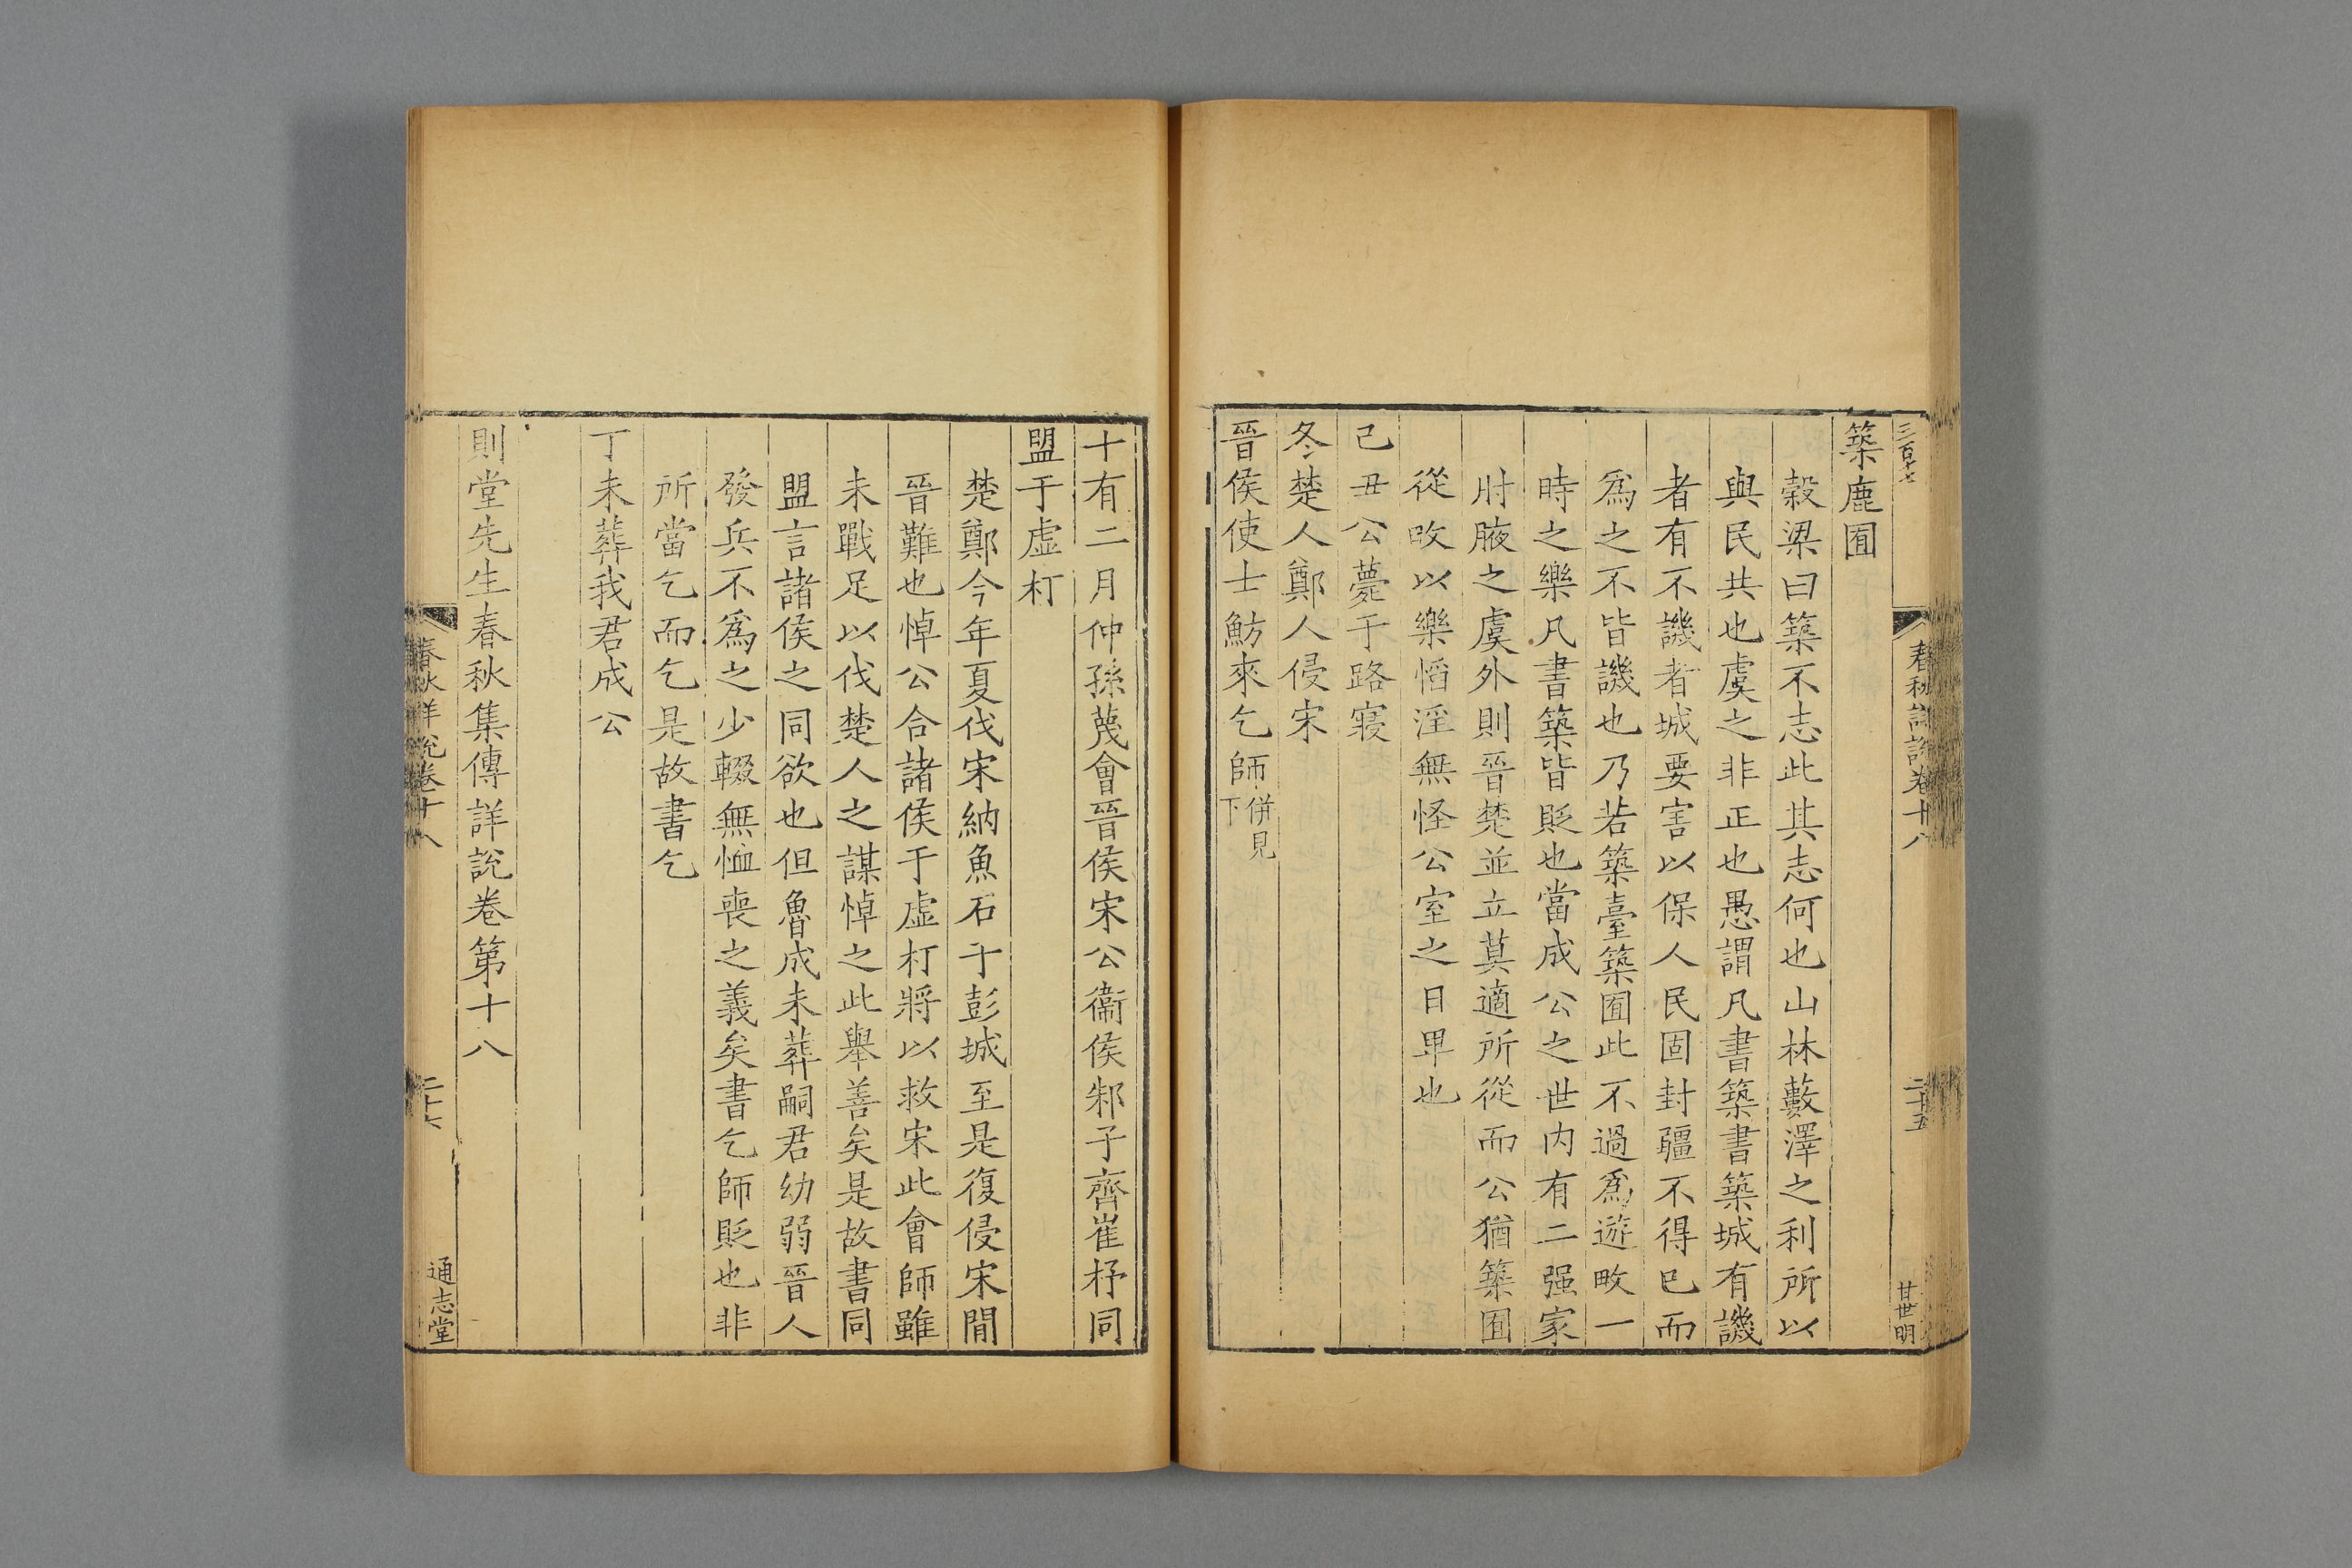 三百十七
春秋詳說卷十八
二十五
甘世明
築鹿囿
穀梁曰築不志此其志何也山林藪澤之利所以
與民共也虞之非正也愚謂凡書築書築城有譏
者有不譏者城要害以保人民固封疆不得已而
爲之不皆譏也乃若築臺築囿此不過爲遊畋一
時之樂凡書築皆貶也當成公之世内有二强家
肘腋之虞外則晉楚並立莫適所從而公猶築囿
從畋以樂慆淫無怪公室之日卑也
己丑公薨于路寢
冬楚人鄭人侵宋
晉侯使士魴來乞師併見下
十有二月仲孫蔑會晉侯宋公衞侯邾子齊崔杼同
盟于虛朾
楚鄭今年夏伐宋納魚石于彭城至是復侵宋間
晉難也悼公合諸侯于虛朾將以救宋此會師雖
未戰足以伐楚人之謀悼之此舉善矣是故書同
盟言諸侯之同欲也但魯成未葬嗣君幼弱晉人
發兵不爲之少輟無恤喪之義矣書乞師貶也非
所當乞而乞是故書乞
丁未葬我君成公
則堂先生春秋集傳詳說卷第十八
春秋詳說卷十八
二十六
通志堂